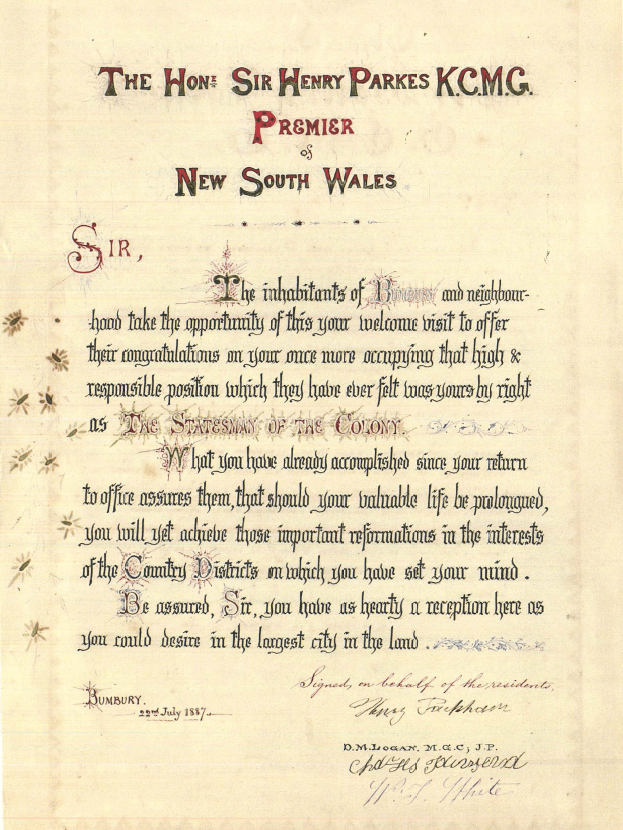 THE HON: SIR HENRY PARKES K.C.M.G.
PREMIER
of
NEW SOUTH WALES
SIR,
The inhabitants of BUMBURY and neighbour-
hood take the opportunity of this your welcome visit to offer
their congratulations on your once more occupying that high &
responsible position which they have ever felt was yours by right
as THE STATESMAN OF THE COLONY.
What you have already accomplished since your return
to office assures them, that should your valuable life be prolongued,
you will yet achieve those important reformations in the interests
of the Country Districts on which you have set your mind.
Be assured, Sir, you have as hearty a reception here as
you could desire in the largest city in the land
Signed, on behalf of the residents,
BUMBURY.
22nd July 1887.
Henry Packham
D.M. LOGAN. M.G.C; J.P.
Chas Hd Townsend
W. J. White